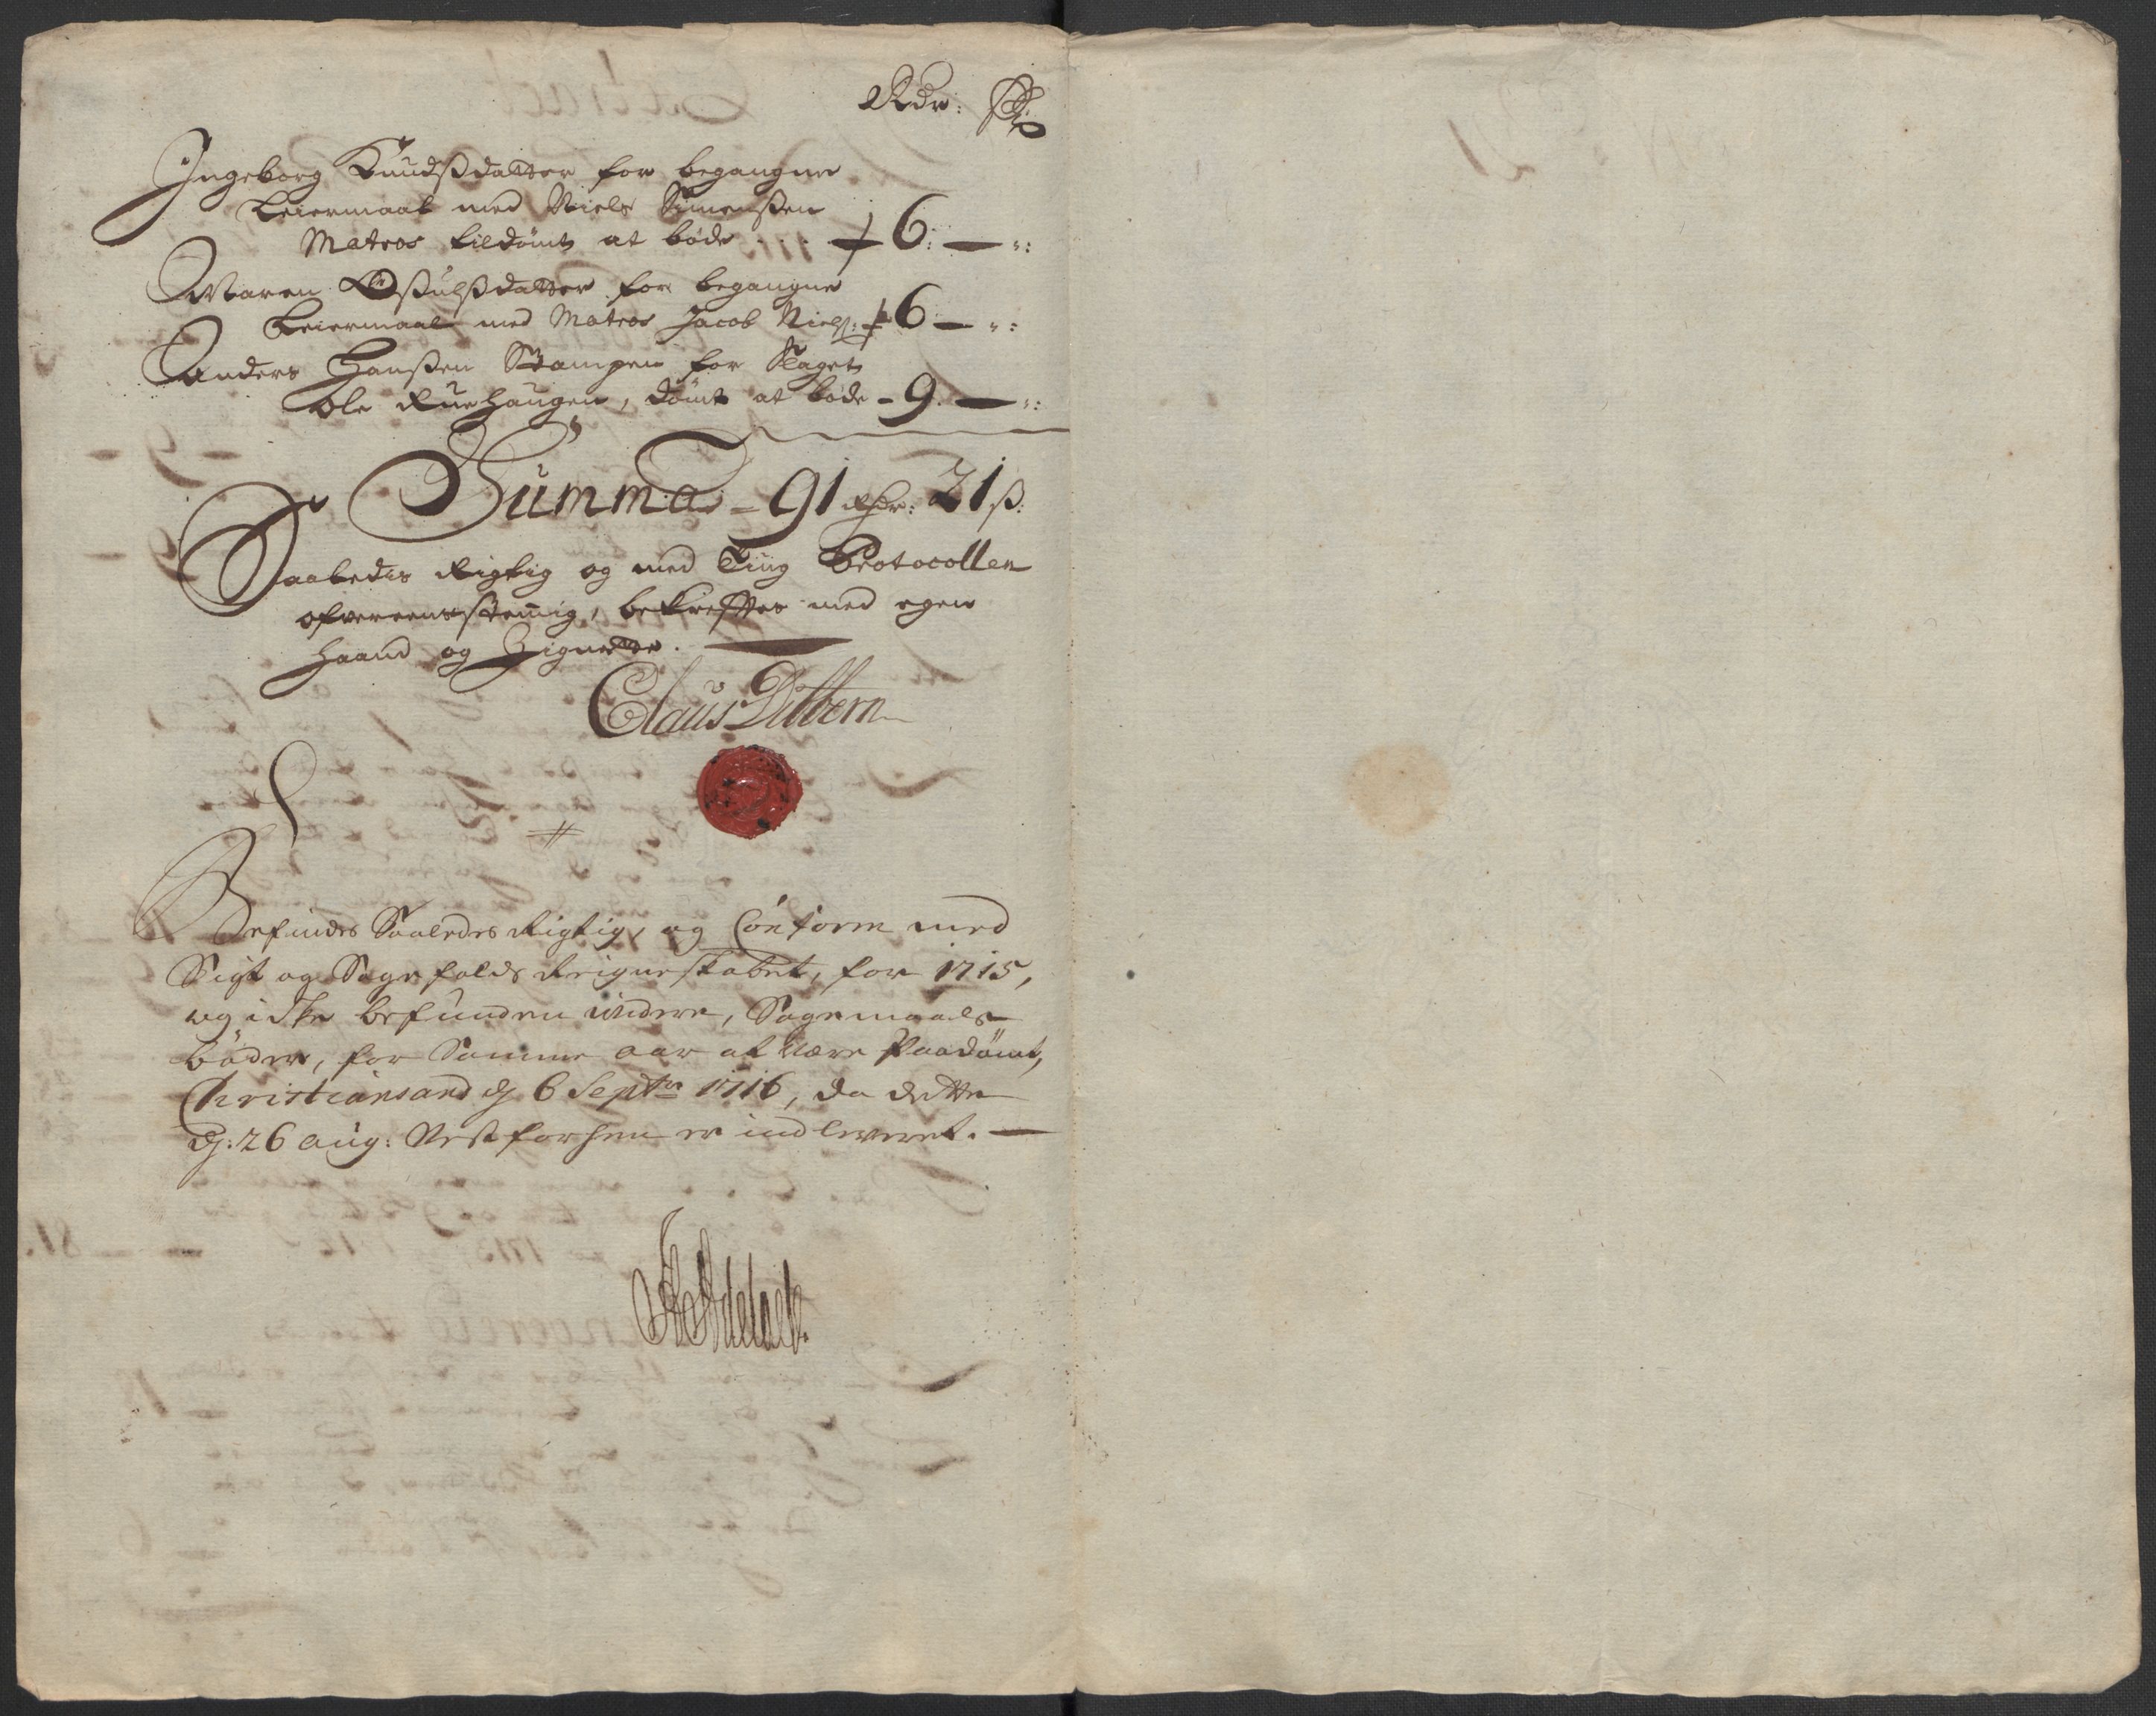 Rdr: ß
Ingeborg Knudsdatter for begangne
Leiermaal med Niels Simensen
Matros tildömt at böde - 6: — ":
Maren Osulsdatter for begangne
Leiermaal med Matros Jacob Niels: - 6 — ":
Anders Hansen Stampen for Slaget
Ole Ruehaugen, dömt at böde - 9. — ":
Summa - 91 Rdr: 21 ß.
Saaledis Rigtig og med Ting Protocollen
ofvereensstemig, bekreftes med egen
Haand og Signette.
Claus Ditbern
Befindes Saaledes Rigtig, og Conform med
Sigt og Sagefalds Reigneskabet, for 1715,
og iche befunden videre, Sagemaals
böder, for Samme aar at være Paadömt,
Christiansand dj 6 Septr 1716, da dette
dj: 26 aug: Nestforhen er indleveret. —